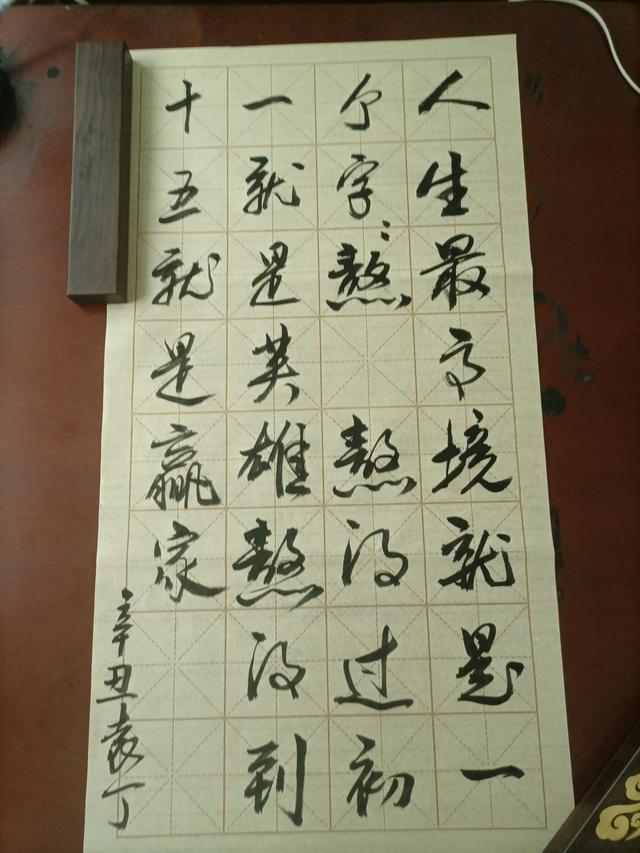 人生最高境就是一
个字：熬 熬得过初
一就是英雄熬得到
十五就是赢家
辛丑袁丁